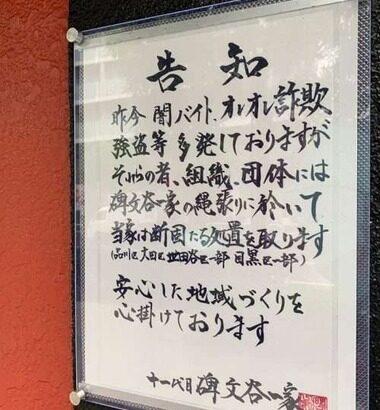 告知
昨今闇バイト、オレオレ詐欺
強盗等多発しておりますが
それらの者、組織、団体には
碑文谷一家の縄張りに於いて
当家は断固たる処置を取ります
(品川区 大田区 世田谷区一部 目黒区一部)
安心した地域づくりを
心掛けております
十一代目 碑文谷一家